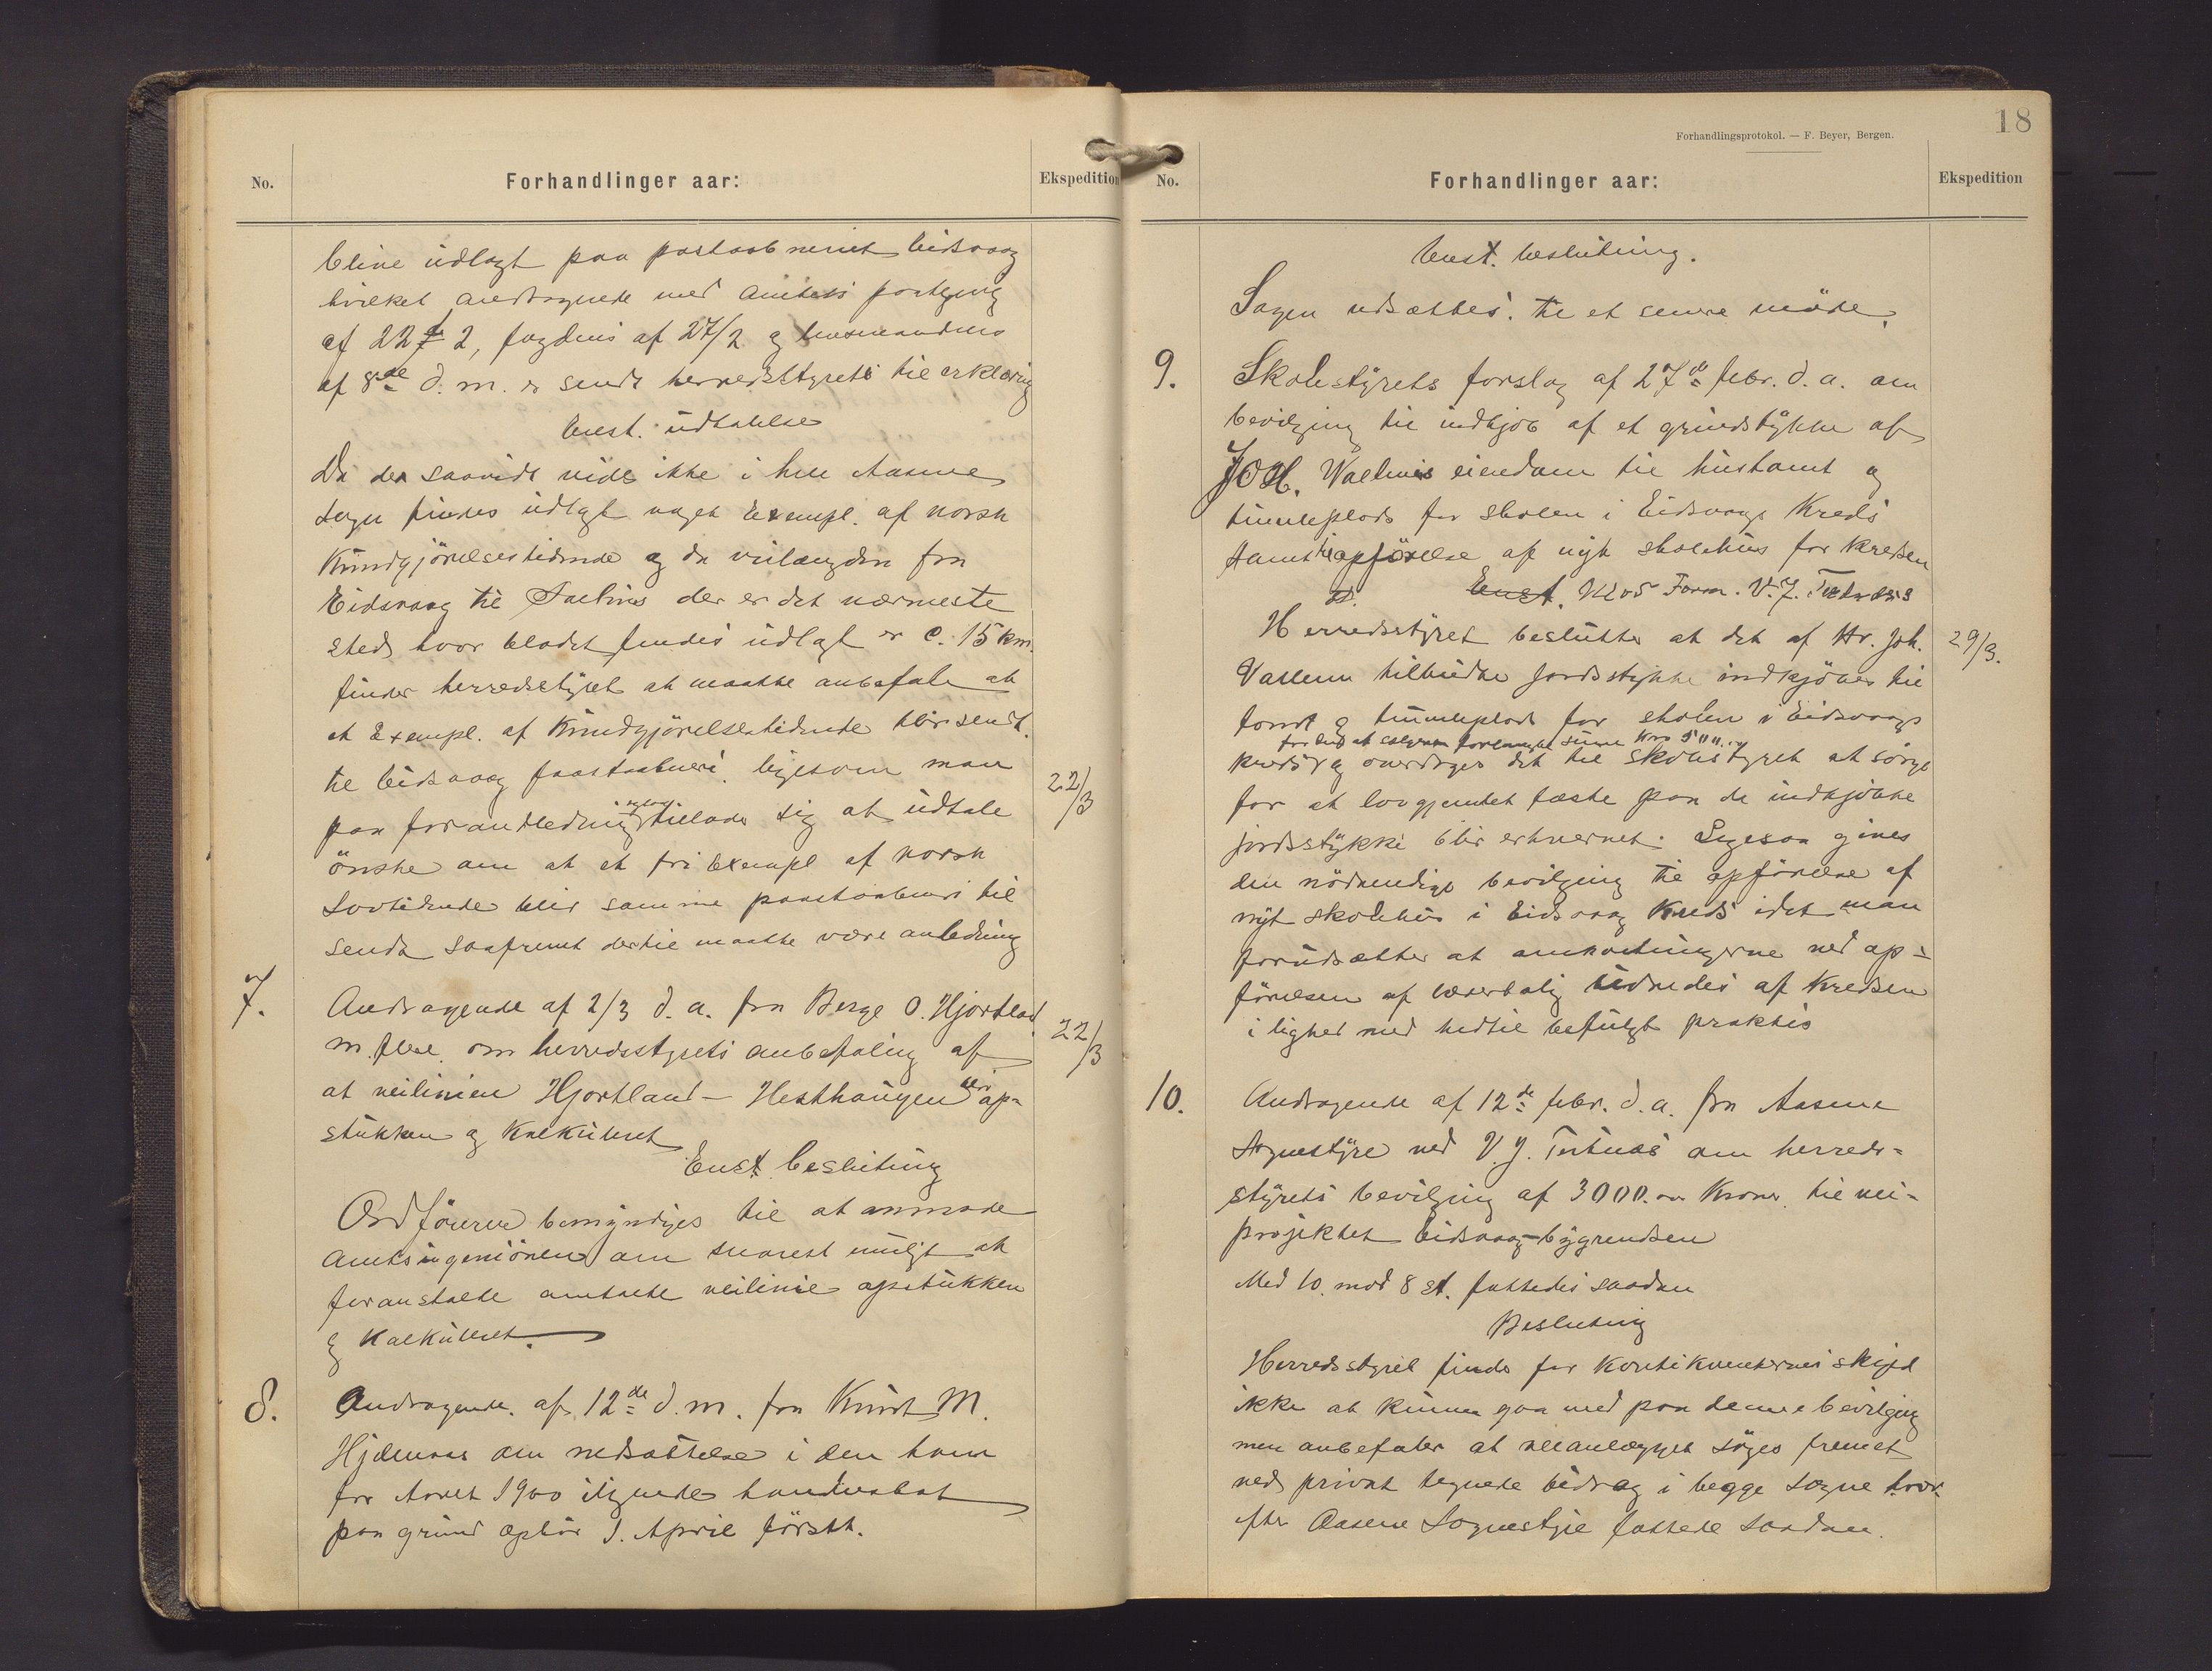 No.
Forhandlinger aar:
Ekspedition
blive udlagt paa postaabneriet Eidsvaag
hvilket andragende med amtets paategning
af 22/2, fogdens af 27/2 og lensmandens
af 8de d. m. er sendt herredsstyrets til erklæring
Enst. udtalelse
Da der saavidt vides ikke i hele Aasene
sogn findes udlagt noget Exempl. af norsk
Kundgjörelsestidende og da veilængden fra
Eidsvaag til der er det nærmeste
sted hvor bladet findes udlagt er c. 15 km.
finder herredsstyret at maatte anbefale at
et Exempl. af Kundgjörelsestidende blir sendt
til Eidsvaag postaabneri. ligesom man
paa foranledning tillader sig at udtale
önske om at et fri Exempl af norsk
Lovtidende blir samme postaabneri til
sendt saafremt dertil maatte være anledning
22/3
7.
Andragende af 2/3 d. a. fra Berge O. Hjortland
m. flere om herredsstyrets anbefaling af
at veilinien Hjortland - Hesthaugen blir op-
stukken og Kalkuleret
22/3
Enst beslutning
Ordföreren bemyndiges til at anmode
amtsingeniören om snarest muligt at
foranstalte omtalte veilinie opstukken
og Kalkuleret.
8.
Andragende af 12de d. m. fra Knut M.
Hjelmaas om nedsættelse i den ham
for Aaret 1900 ilignede
paa grund ophör 1. April förstk.
18
Forhandlingsprotokol. — F. Beyer, Bergen.
No.
Forhandlinger aar:
Ekspedition
Enst. beslutning.
Sagen udsættes til et senere möde.
9.
Skolestyrets forslag af 27de febr. d. a. om
bevilgning til indkjöb af et grundstykke af
Joh. eiendom til hustomt og
tumleplads for skolen i Eidsvaags Kreds
samt til opförelse af nyt skolehus for kredsen
Enst. Form. V. J. Tertnæs
Herredsstyret beslutter at det af Hr. Joh.
tilbudte jordstykke indkjöbes til
tomt og tumleplads for skolen i Eidsvaags
for den af selgeren forlangte sum Kro 500.
kreds og overdrages det til skolestyret at sörge
for at lovgjemtet fæste paa de indkjöbte
jordstykke blir erhvervet. Ligesaa gives
den nödvendige bevilgning til opförelse af
nyt skolehus i Eidsvaag Kreds idet man
forudsætter at omkostningerne ved op-
förelsen af lærerbolig udredes af Kredsen
i lighed med hidtil befulgt praktis
29/3.
10.
Andragende af 12te febr. d. a. fra Aasene
Sognestyre ved V. J. Tertnæs om herreds-
styrets bevilgning af 3000.oo Kroner til vei-
projektet Eidsvaag-bygrendsen
Med 10 mod 8 st. fattedes saadan
Beslutning
Herredsstyret finder for skyld
ikke at kunne gaa med paa denne bevilgning
men anbefaler at veianlægget söges fremet
ved privat tegnede bidrag i begge sogne hvor-
efter Aasene Sognestyre fattede saadan.